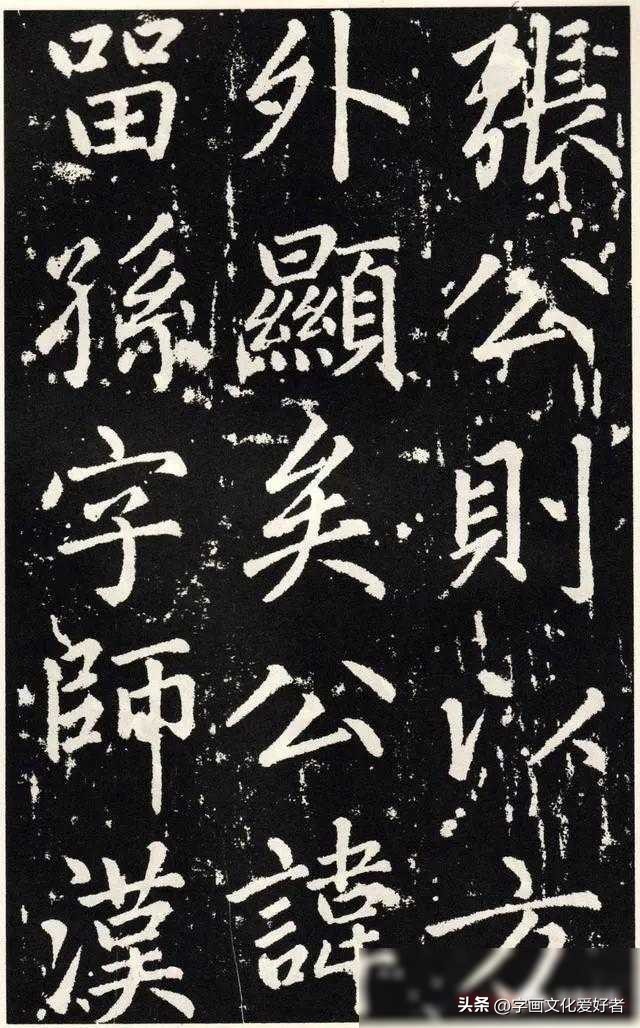 張公則以方
外顯矣公諱
畱孫字師漢
头条 @字画文化爱好者